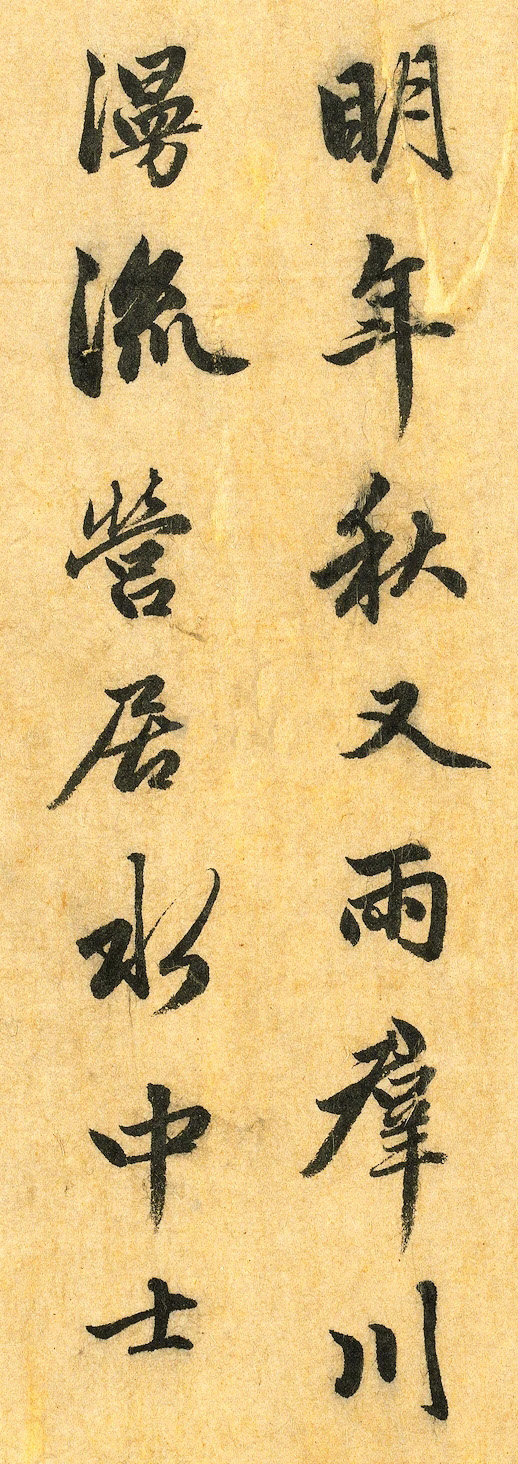 明年秋又雨羣川
漫流營居水中士